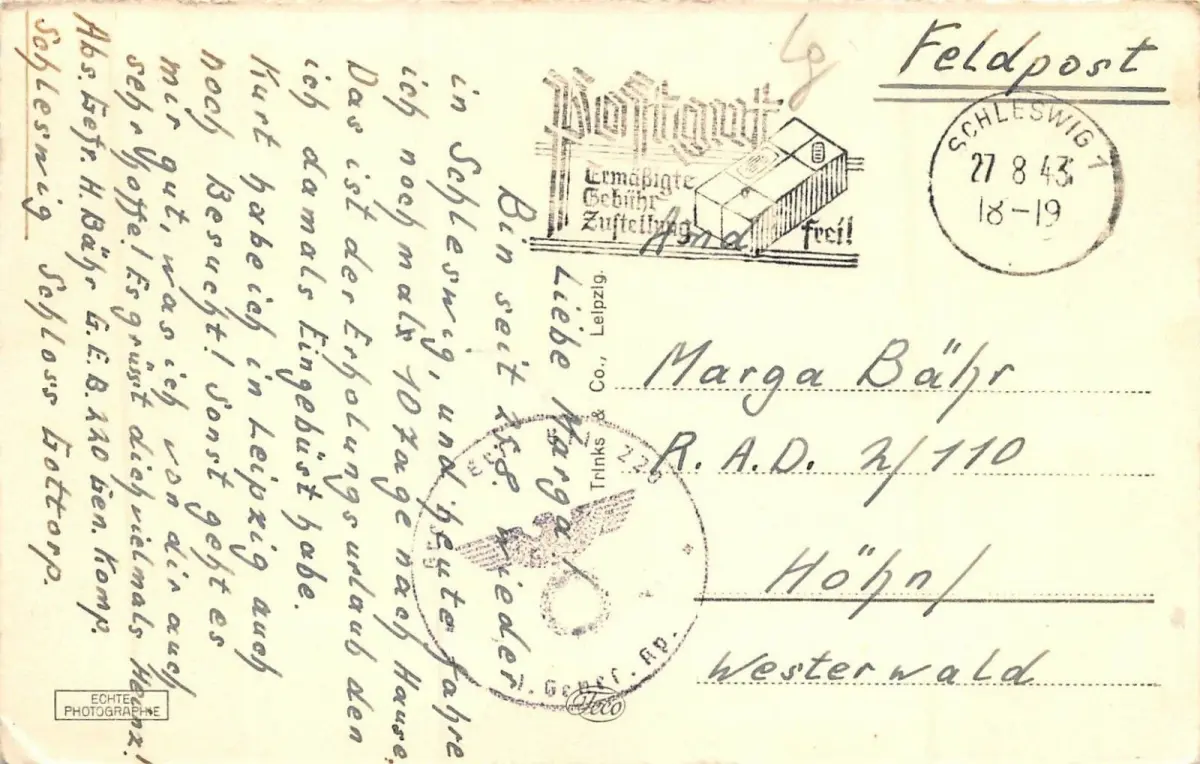 Feldpost
Lg
Postgut
Ermäßigte
Gebühr
Zustellung frei!
SCHLESWIG 1
27 8 43
18-19
And
Marga Bähr
R. A. D. 2/110
Höhn/
Westerwald
Liebe Marga!
Bin seit 25.8. wieder
in Schleswig, und heute fahre
ich nochmals 10 Tage nach Hause.
Das ist der Erholungsurlaub den
ich damals Eingebüst habe.
Kurt habe ich in Leipzig auch
noch Besucht! Sonst geht es
mir gut, was ich von dir auch
sehr hoffe! Es grüsst dich vielmals Heinz!
Abs. Gefr. H. Bähr G.E.B. 220 Gen. Komp.
Schleswig Schloss Gottorp.
Trinks & Co., Leipzig.
220
Genes. Kp.
ECHTE
PHOTOGRAPHIE
Trico